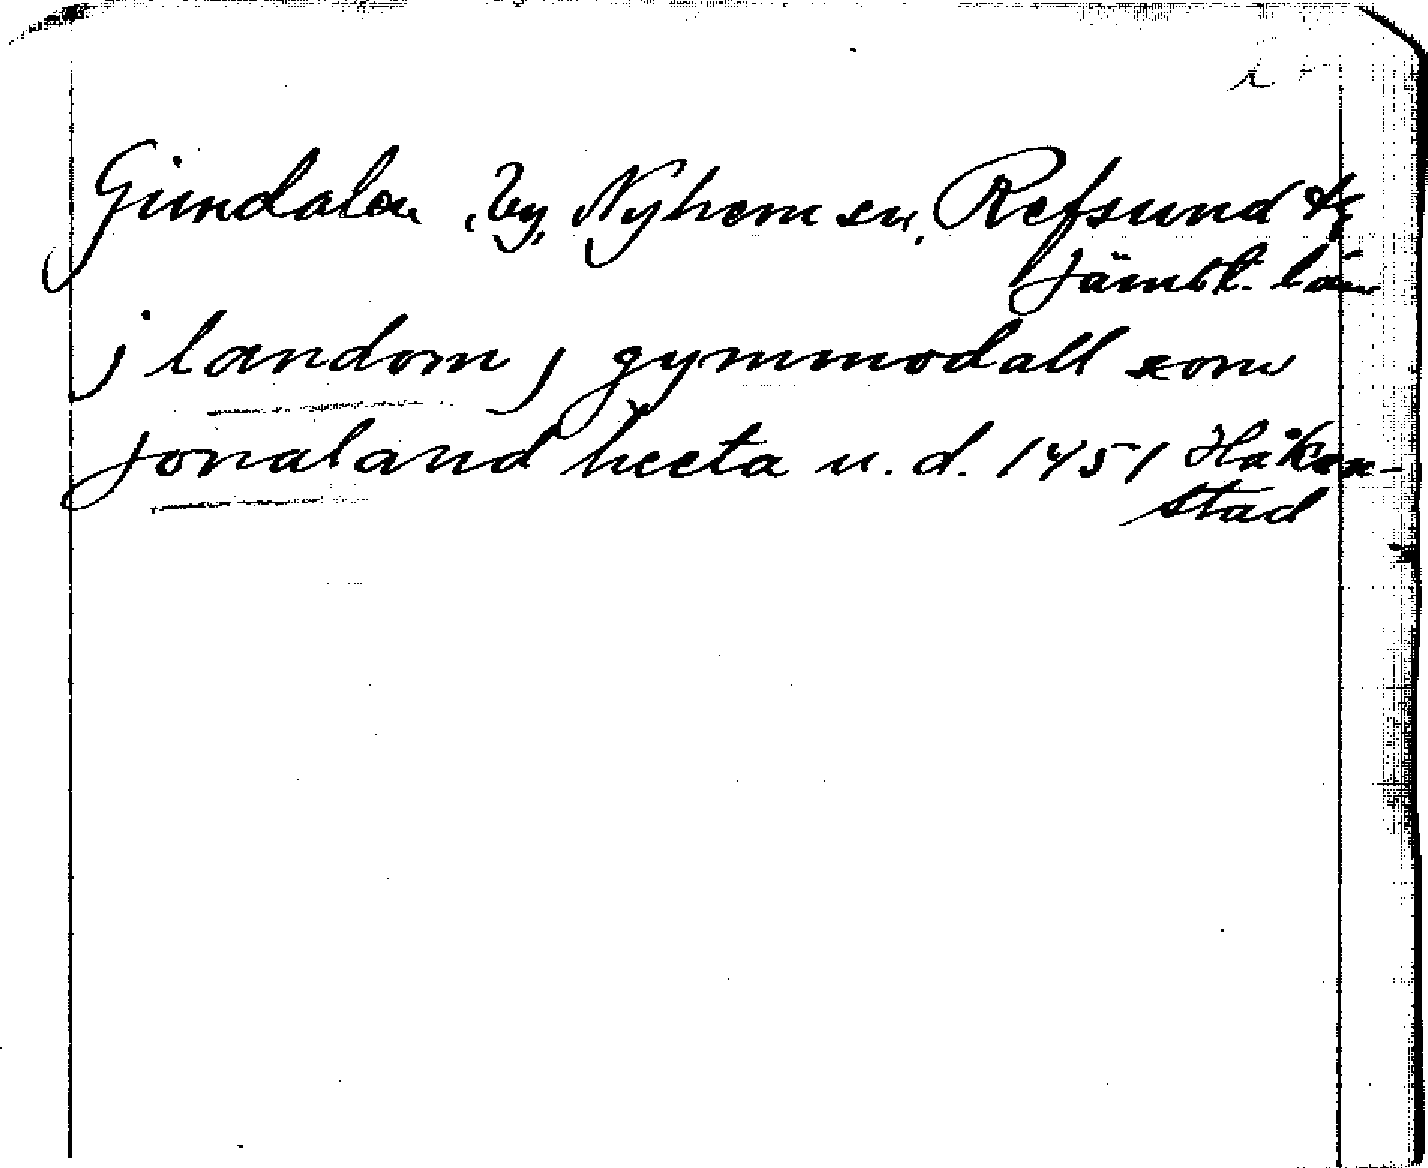 Gimdalen, by, Nyhem sn, Refsund tg
Jämtl. län
j landom j gymmodall som
jonaland heeta u. d. 1451 Håkon-
stad